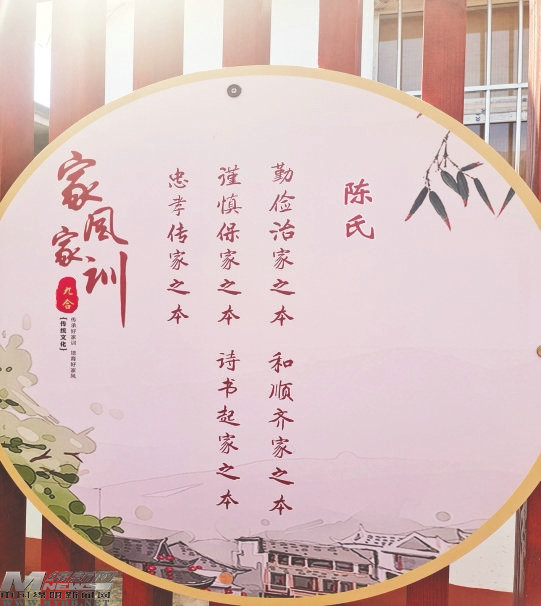 陈氏
勤俭治家之本 和顺齐家之本
谨慎保家之本 诗书起家之本
忠孝传家之本
家风家训
九合
传承好家训 培育好家风
【传统文化】
NEWS